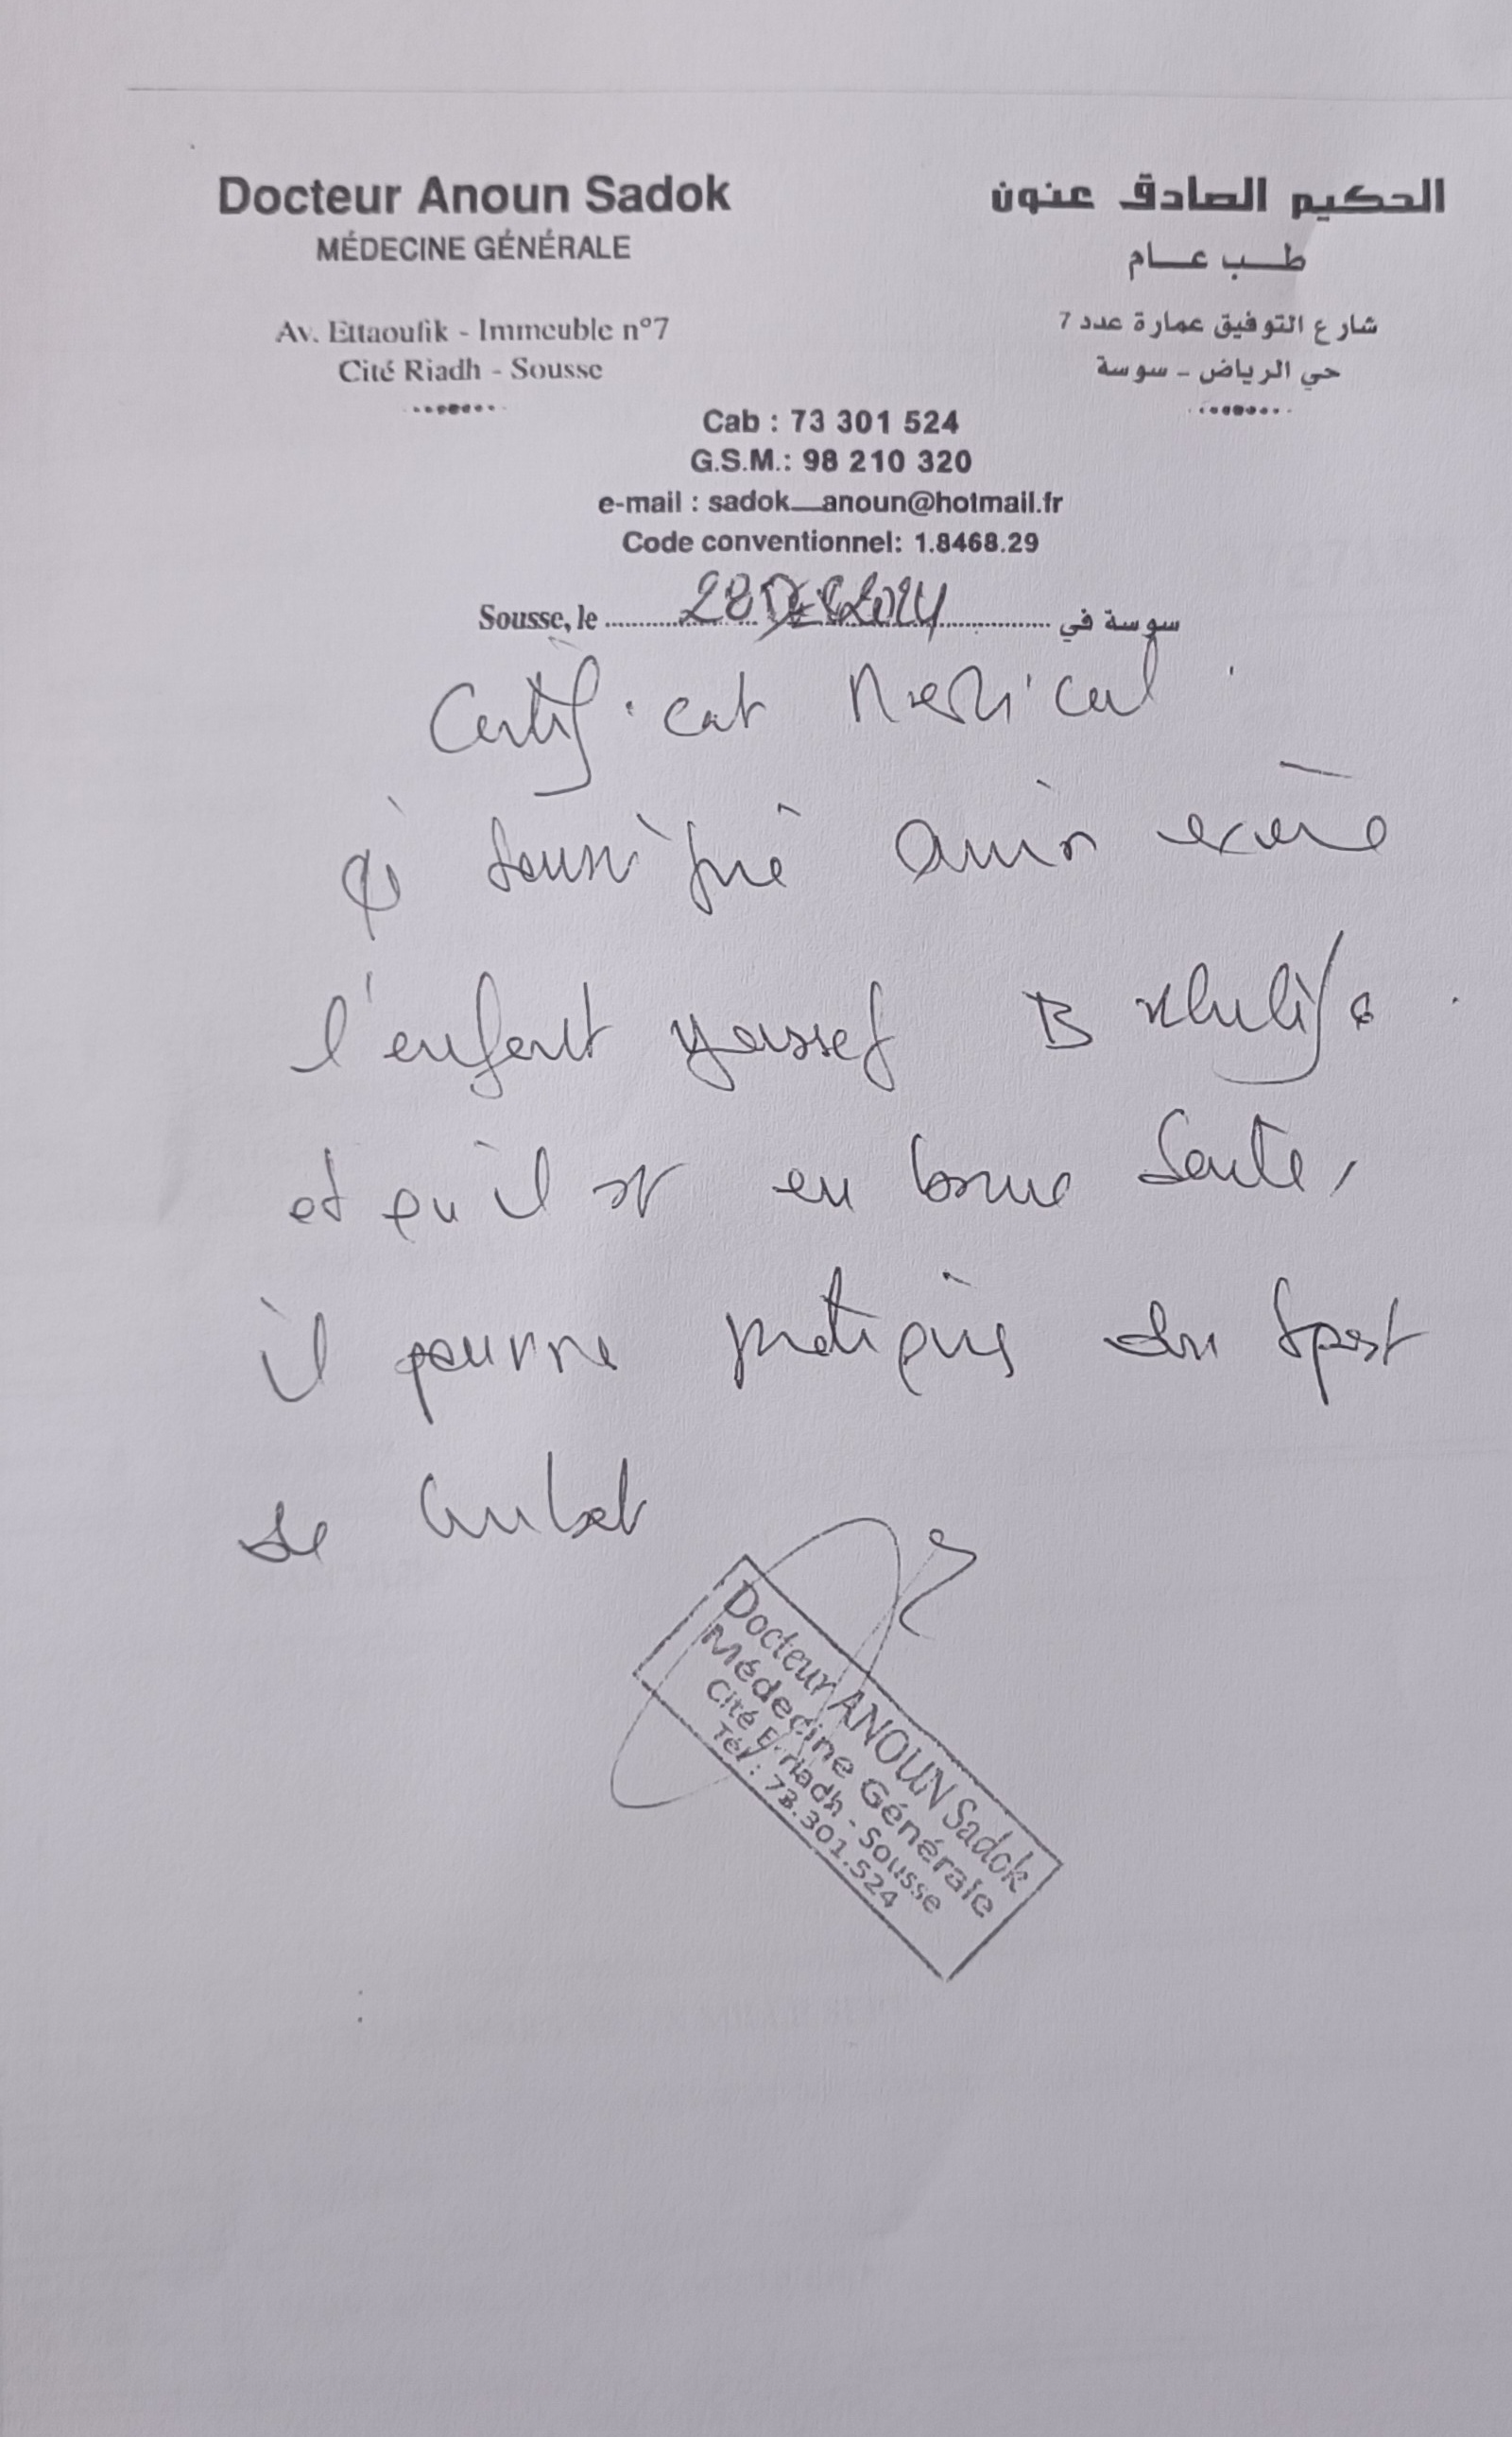 Docteur Anoun Sadok
MÉDECINE GÉNÉRALE
Av. Ettaoufik - Immeuble n°7
Cité Riadh - Sousse
الحكيم الصادق عنون
طب عام
شارع التوفيق عمارة عدد 7
حي الرياض - سوسة
Cab : 73 301 524
G.S.M.: 98 210 320
e-mail : sadok_anoun@hotmail.fr
Code conventionnel: 1.8468.29
Sousse, le 28 DEC 2024 سوسة في
Certificat Medical
Je soussigné avoir examiné
l'enfant Youssef B Khalifa
et qu'il est en bonne santé,
il pourra pratiquer du sport
de combat
Docteur ANOUN Sadok
Médecine Générale
Cité Erriadh - Sousse
Tél : 73.301.524